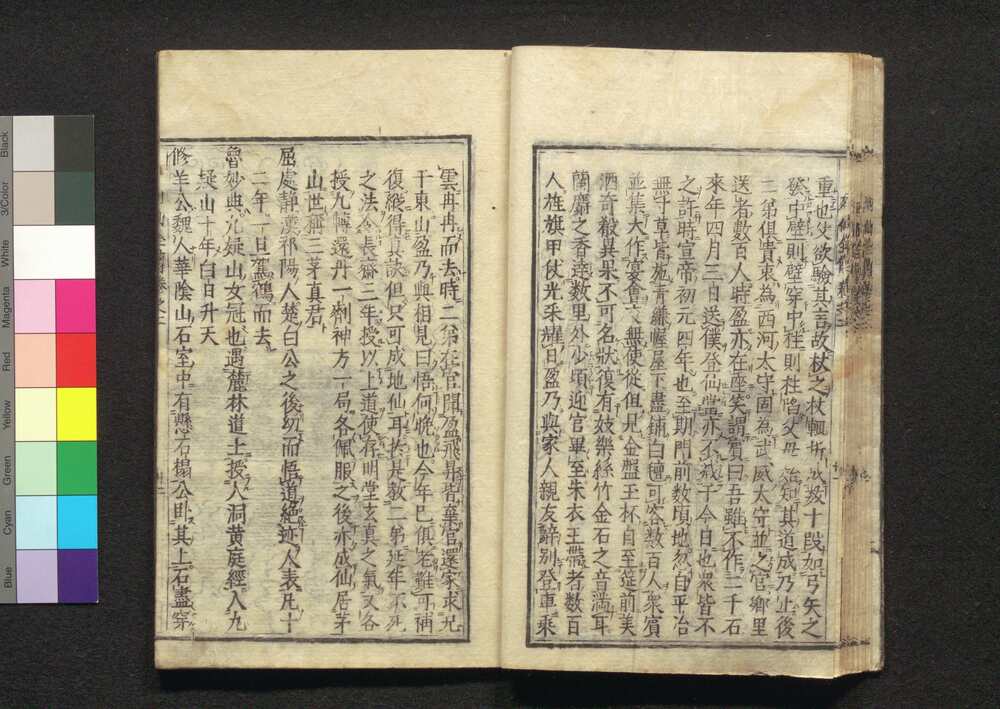 重也父欲驗其言故杖之杖輒折次成十段如弓矢之
發中壁則壁穿中柱則柱陷父母始知其道成乃止後
二弟俱貴衷為西河太守固為武威太守並之官鄉里
送者數百人時盈亦在座笑謂賓曰吾雖不作二千石
來年四月三日送僕登仙當亦不減于今日也衆皆不
之許時宣帝初元四年也至期門前數頃地忽自平治
無寸草皆施青縑幄屋下盡鋪白氊可容數百人衆賓
並集大作宴會無使從但見金盤玉杯自至筵前美
酒奇殽異果不可名狀復有妓樂絲竹金石之音滿耳
蘭麝之香達數里外少頃迎官畢至朱衣玉帶者數百
人旌旗甲仗光采耀日盈乃與家人親友辭別登車乘
雲冉冉而去時二弟在官聞盈飛昇皆棄官還家求兄
于東山盈乃與相見曰悟何晚也今年已俱老難可補
復縱得真訣但只可成地仙耳於是教二弟延年不死
之法令長齋三年授以上道使存明堂玄真之氣又各
授九轉還丹一劑神方一局各佩服之後亦成仙居茅
山世稱三茅真君
屈處靜漢祁陽人楚白公之後幼而悟道絕迹人表凡十
二年一旦駕鶴而去
魯妙典九疑山女冠也遇麓林道士授人洞黄庭經入九
疑山十年白日升天
修羊公魏人華陰山石室中有懸石榻公臥其上石盡穿
Blue
Cyan
Green
Yellow
Red
Magenta
White
3/Color
Black